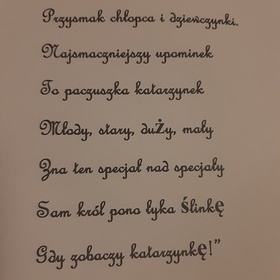 Przysmak chłopca i dziewczynki.
Najsmaczniejszy upominek
To paczuszka katarzynek
Młody, stary, duży, mały
Zna ten specjał nad specjały
Sam król pono łyka ślinkę
Gdy zobaczy katarzynkę!”